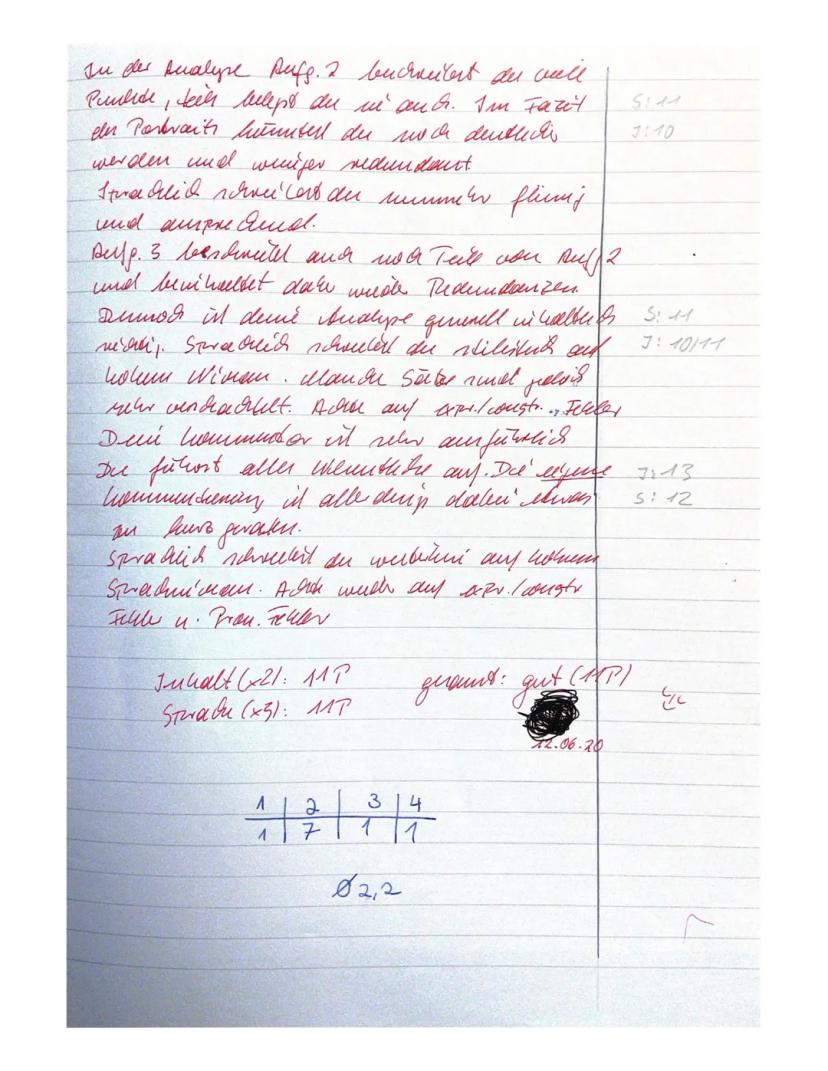 In der Analyse Aufg. 2 beschreibst du viele
Punkte, teils belegst du sie auch. Im Fazit S: 11
des Portraits könntest du noch deutlicher I: 10
werden und weniger redundant
Sprachlich schreibst du nunmehr flüssig
und ansprechend.
Aufg. 3 beschreibt auch noch Teile von Aufg 2
und beinhaltet daher wieder Redundanzen.
Dennoch ist deine Analyse generell inhaltlich S: 11
richtig. Sprachlich schreibst du stilistisch auf I: 10/11
hohem Niveau. Manche Sätze sind jedoch
sehr verschachtelt. Achte auf expr./constr. Fehler
Dein Kommentar ist sehr ausführlich
Du führst alles Wesentliche auf. Die eigene I: 13
Kommentierung ist allerdings dabei etwas S: 12
zu kurz geraten.
Sprachlich schreibst du weiterhin auf hohem
Sprachniveau. Achte wieder auf expr./constr
Fehler u. Pron. Fehler
Inhalt (x2): 11P gesamt: gut (11P)
Sprache (x3): 11P
12.06.20
1 2 3 4
1 7 1 1
Ø 2,2